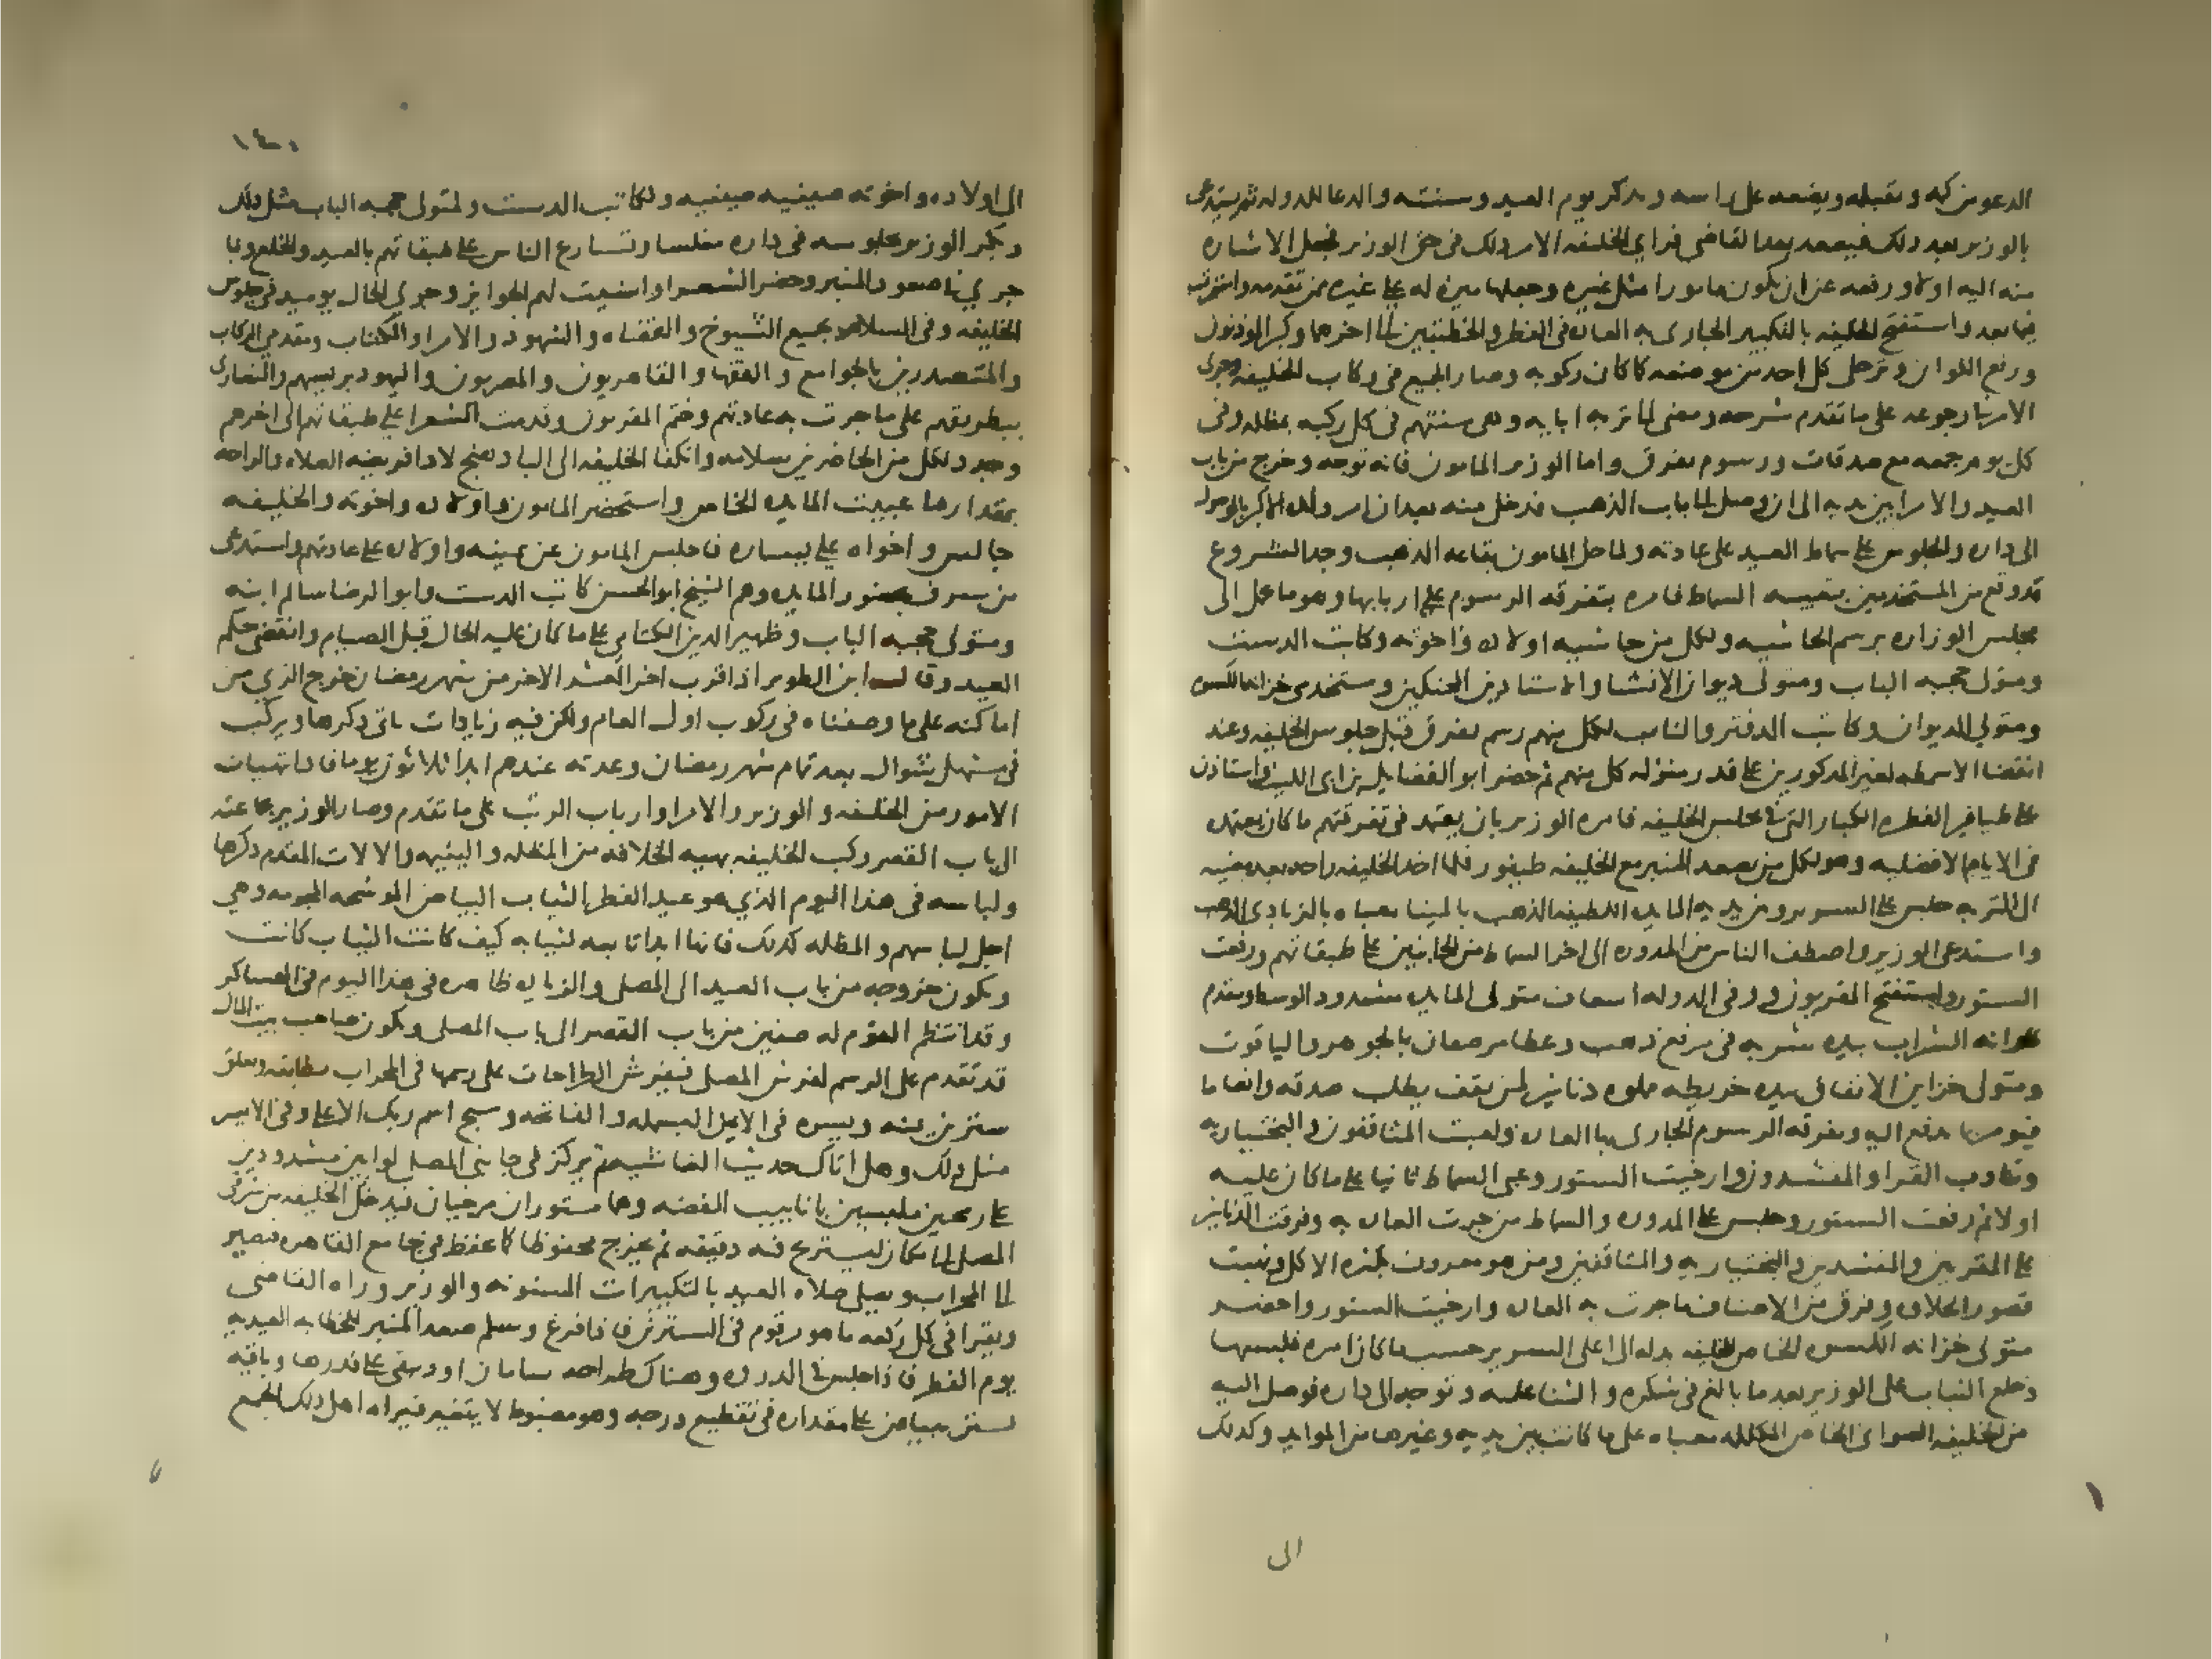 الدعو من كمه وتقبله ويضعه على راسه ويذكر يوم العيد وسنته والدعا للدوله ثم يستدعى
بالوزير بعد ذلك فيصعد بعد القاضى فراي الخليفه الامر ذلك فى حق الوزير فجعل الاشاره
منه اليه اولا ورفعه عن ان يكون مامورا مثل غيره وجعلها ميزه له على غيره ممن تقدمه واستمرت
فيما بعد واستفتح الخليفه بالتكبير الجارى به العاده فى الفطر والخطبتين الى اخرهما وكبر الموذنون
ورفع اللوان وترجل كل احد من موضعه كما كان ركوبه وصار الجميع فى ركاب الخليفه وجرى
الامر فى رجوعه على ما تقدم شرحه ومضى الى تربه ابايه وهى سنتهم فى كل ركبه بمظله وفى
كل يوم جمعه مع صدقات ورسوم تفرق واما الوزير المامون فانه توجه وخرج من باب
العيد والامرا بين يديه الى ان وصل الى باب الذهب فدخل منه بعد ان امر ولده الاكبر بالوصول
الى داره والجلوس على سماط العيد على عادته ولما حل المامون بقاعه الذهب وجد الشروع
قد وقع من المستخدمين بتعبيه السماط فامره بتفرقه الرسوم على اربابها وهو ما يحمل الى
مجلس الوزاره برسم الحاشيه ولكل من حاشيه اولاده واخوته وكاتب الدست
ومتولى حجبه الباب ومتولى ديوان الانشا والاستادين المحنكين ومستخدمى خزانه الكسوه
ومتولي الديوان وكاتب الدفتر والنايب لكل منهم رسم يفرق قبل جلوس الخليفه وعند
انقضا الاسمطه لغير المذكورين على قدر منزله كل منهم ثم حضر ابو الفضايل بن ابى الليث واستاذن
على طيافير الفطره الكبار التى فى مجلس الخليفه فامره الوزير بان يعتمد فى تفرقتهم ما كان يعتمده
فى الايام الافضليه وهو لكل من يصعد المنبر مع الخليفه طيفور فلما اخذ الخليفه راحه بعد مضيه
الى التربه جلس على السرير وبين يديه المايده اللطيفه الذهب بالمينا معباه بالزبادى الذهب
واستدعى الوزير واصطف الناس من المدوره الى اخر السماط من الجانبين على طبقاتهم ورفعت
الستور واستفتح المقريون ووفى الدوله اسعاف متولى المايده مشدود الوسط ومقدم
خزانه الشراب بيده شربه فى مرفع ذهب وغطا مرصعان بالجوهر والياقوت
ومتولى خزاين الانفاق بيده خريطه مملوه دنانير لمن يقف يطلب صدقه وانعاما
فيومر بما يدفع اليه وتفرقه الرسوم الجارى بها العاده ولعبت المثاقفون والبختياريه
وتناوب القرا والمنشدون وارخيت الستور وعبى السماط ثانيا على ما كان عليه
اولا ثم رفعت الستور وجلس على المدوره والسماط من جرت العاده به وفرقت الدنانير
على المقريين والمنشدين والبختياريه والمثاقفين ومن هو معروف بكثره الاكل ونهبت
قصور الحلاوه وفرق من الاصناف ما جرت به العاده وارخيت الستور واحضر
متولى خزانه الكسوه الخاص للخليفه بدله الى اعلى السرير حسب ما كان امره فلبسها
وخلع الثياب على الوزير بعد ما بالغ فى شكره والثنا عليه وتوجه الى داره فوصل اليه
من الخليفه الصوانى الخاص المكلله معباه على ما كانت بين يديه وغيرها من الموايد وكذلك
الى
١٤٠
الى اولاده واخوته صينيه صينيه ولكاتب الدست ولمتولى حجبه الباب مثل ذلك
وكبر الوزير بجلوسه فى داره مغلسا وتسارع الناس على طبقاتهم بالعيد والخلع وبما
جري فى صعود المنبر وحضر الشعرا واسنيت لهم الجوايز وجرى الحال يوميذ فى جلوس
الخليفه وفى السلام لجميع الشيوخ والقضاه والشهود والامرا والكتاب ومقدمى الركاب
والمتصدرين بالجوامع والفقها والقاهريون والمصريون واليهود برييسهم والنصارى
ببطريقهم على ما جرت به عادتهم وختم المقريون وقدمت الشعرا على طبقاتهم الى اخرهم
وجدد لكل من الحاضرين سلامه وانكفا الخليفه الى الباذهنج لادا فريضه الصلاه والراحه
بمقدار ما عبيت المايده الخاص واستحضر المامون واولاده واخوته والخليفه
جالس واخواه على يساره فاجلس المامون عن يمينه واولاده على عادتهم واستدعى
من يعرف بحضور المايده وهم الشيخ ابو الحسن كاتب الدست وابو الرضا سالم ابنه
ومتولى حجبه الباب وظهير الدين الكتامى على ما كان عليه الحال قبل الصيام وانقضى حكم
العيد وقال ابن الطوير اذا قرب اخر العشر الاخر من شهر رمضان خرج الزي من
اماكنه على ما وصفناه فى ركوب اول العام ولكن فيه زيادات ياتى ذكرها ويركب
فى مستهل شوال بعد تمام شهر رمضان وعدته عندهم ابدا ثلاثون يوما فاذا تهيات
الامور من الخليفه والوزير والامرا وارباب الرتب على ما تقدم وصار الوزير بجماعته
الى باب القصر ركب الخليفه بهييه الخلافه من المظله واليتيمه والالات المقدم ذكرها
ولباسه فى هذا اليوم الذي هو عيد الفطر الثياب البياض الموشحه المجومه وهى
اجل لباسهم والمظله كذلك فانها ابدا تابعه لثيابه كيف كانت الثياب كانت
ويكون خروجه من باب العيد الى المصلى والزياده ظاهره فى هذا اليوم فى العساكر
وقد انتظم القوم له صفين من باب القصر الى باب المصلى ويكون صاحب بيت المال
قد تقدم على الرسم لفرش المصلى فيفرش الطراحات على رسمها فى المحراب مطابقه ويعلق
سترين يمنه ويسره فى الايمن البسمله والفاتحه وسبح اسم ربك الاعلى وفى الايسر
مثل ذلك وهل اتاك حديث الغاشيه ثم يركز فى جانبى المصلى لوايين مشدودين
على رمحين ملبسين بانابيب الفضه وهما مستوران مرخيان فيدخل الخليفه من شرقى
المصلى الى مكان ليستريح فيه دقيقه ثم يخرج محفوظا كما يحفظ فى جامع القاهره فيصير
الى المحراب ويصلى صلاه العيد بالتكبيرات المسنونه والوزير وراه القاضى
ويقرا فى كل ركعه ما هو مرقوم فى السترين فاذا فرغ وسلم صعد المنبر للخطابه العيديه
يوم الفطر فاذا جلس فى الذروه وهناك طراحه سامان او دبيقى على قدرها وباقيه
يستر ببياض على مقداره فى تقطيع درجه وهو مضبوط لا يتغير فيراه اهل ذلك الجمع